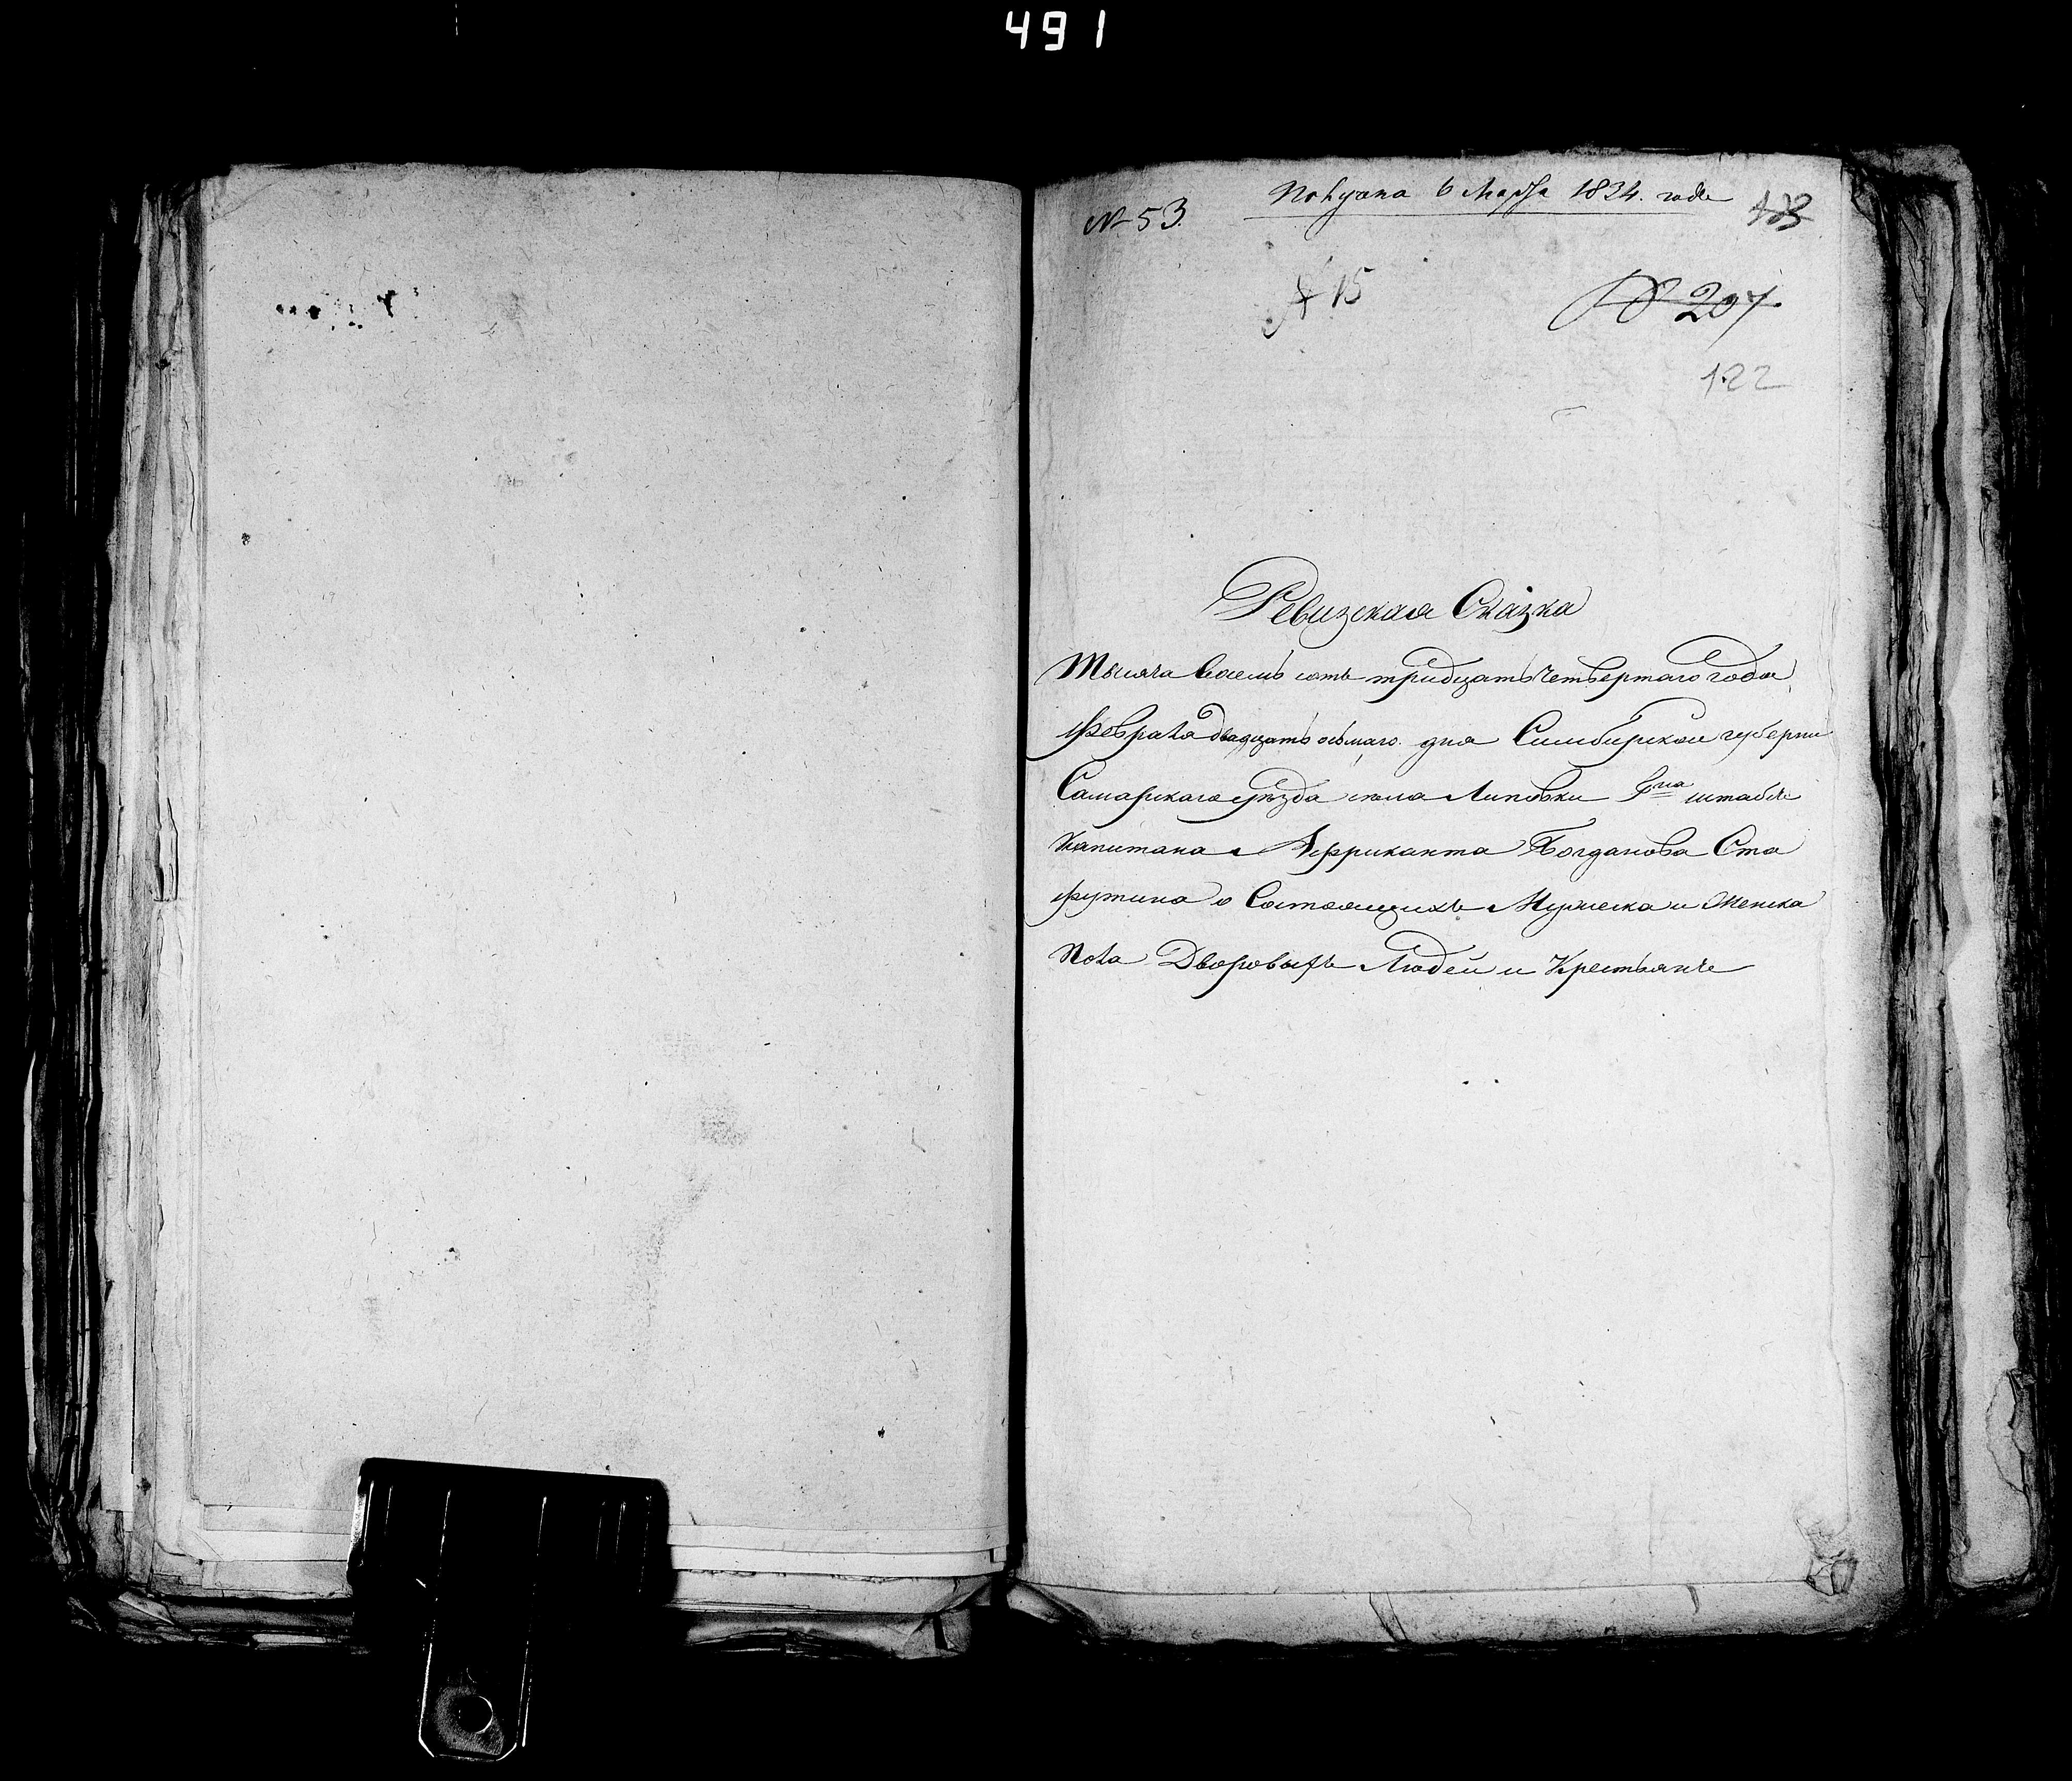 491
№ 53.
Получена 6 Марта 1834. года
№ 15
№ 207.
122
Ревизская Сказка
Тысяча восемь сотъ тридцать четвертаго года
февраля двадцать осьмаго. дня Симбирской губерни
Самарскаго уѣзда села Липовки Гна штабсъ
капитана Африканта Богданова Ста
футина о Состоящихъ Мужеска и Женска
пола Дворовыхъ Людей и Крестьянъ